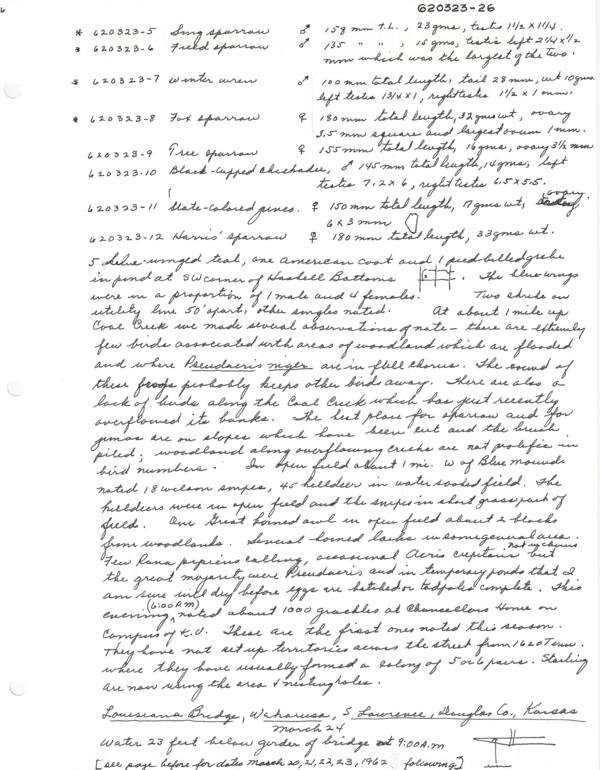 620323-26
* 620323-5 Song sparrow ♂ 158 mm T.L., 23 gms, testis 1 1/2 x 1 1/4.
* 620323-6 Field sparrow ♂ 135 " " , 15 gms, testis left 2 1/4 x 1 1/2
mm which was the largest of the two.
* 620323-7 Winter wren ♂ 100 mm total length, tail 28 mm, wt 10 gms
left testis 1 3/4 x 1, right testis 1 1/2 x 1 mm.
* 620323-8 Fox sparrow ♀ 180 mm total length, 32 gms wt, ovary
3.5 mm square and largest ovum 1 mm.
620323-9 Tree sparrow ♀ 155 mm total length, 16 gms, ovary 3 1/2 mm
620323-10 Black-capped chickadee, ♂ 145 mm total length, 14 gms, left
testis 7.2 x 6, right testis 6.5 x 5.5.
620323-11 Slate-colored juncos. ♀ 150 mm total length, 17 gms wt, ovary
6 x 3 mm
620323-12 Harris' sparrow ♀ 180 mm total length, 33 gms wt.
5 blue-winged teal, one American coot and 1 pied-billed grebe
in pond at SW corner of Haskell Bottoms . The blue wings
were in a proportion of 1 male and 4 females. Two shrike on
utility line 50' apart, other singles noted. At about 1 mile up
Coal Creek we made several observations of note - there are extremely
few birds associated with areas of woodland which are flooded
and where Pseudacris niger are in full chorus. The sound of
these frogs probably keeps other bird away. There is also a
lack of birds along the Coal Creek which has just recently
overflowed its banks. The best place for sparrow and for
juncos are on slopes which have been cut and the brush
piled; woodland along overflowing creeks are not prolific in
bird numbers. In open field about 1 mi. W of Blue mounds
noted 18 wilson snipes, 45 killdeer in water soaked field. The
killdeers were in open field and the snipes in short grass part of
field. One Great horned owl in open field about 2 blocks
from woodlands. Several horned larks in same general area.
Few Rana pipiens calling, occasional Acris crepitans not in chorus but
the great majority were Pseudacris and in temporary ponds that I
am sure will dry before eggs are hatched or tadpoles complete. This
evening (6:00 P.M) noted about 1000 grackles at Chancellors Home on
Campus of K.U. These are the first ones noted this season.
They have not set up territories across the street from 1620 Tenn.
where they have usually formed a colony of 5 or 6 pairs. Starling
are now using the area & nesting holes.
Louisiana Bridge, Wakarusa, S Lawrence, Douglas Co., Kansas
March 24
Water 23 feet below girder of bridge at 9:00 A.m
[see page before for dates March 20, 21, 22, 23, 1962 following]